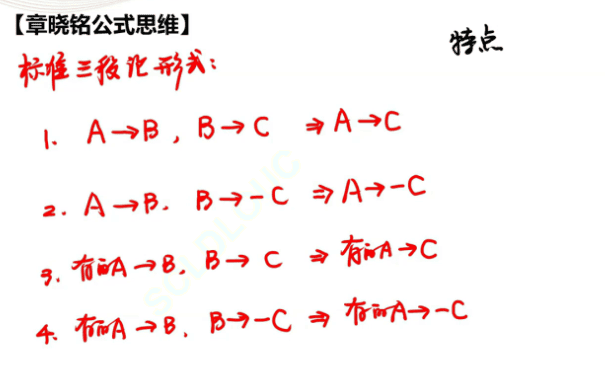 【章晓铭公式思维】
特点
标准三段论形式：
1. A→B , B→C ⇒ A→C
2. A→B. B→-C ⇒ A→-C
3. 有的A→B. B→C ⇒ 有的A→C
4. 有的A→B. B→-C ⇒ 有的A→-C